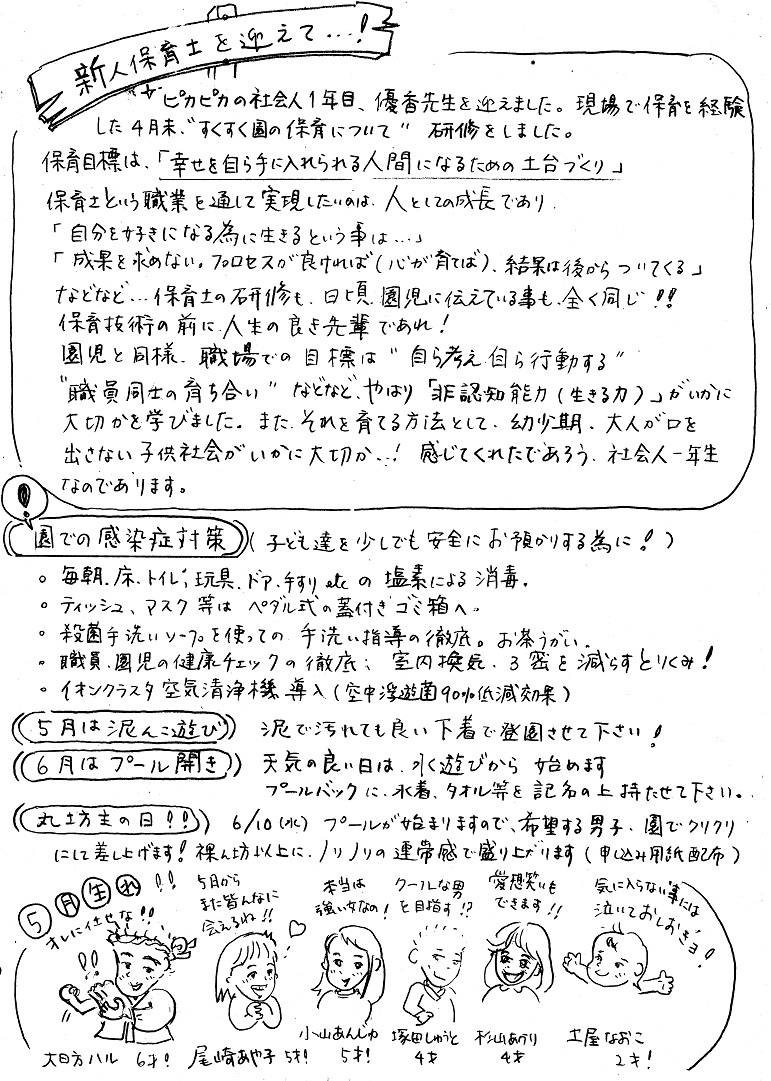 新人保育士を迎えて…!
ピカピカの社会人1年目、優香先生を迎えました。現場で保育を経験
した4月末、“すくすく園の保育について” 研修をしました。
保育目標は、「幸せを自ら手に入れられる人間になるための土台づくり」
保育士という職業を通して実現したいのは、人としての成長であり、
「自分を好きになる為に生きるという事は…」
「成果を求めない。プロセスが良ければ(心が育てば)、結果は後からついてくる」
などなど…保育士の研修も、日頃、園児に伝えている事も、全く同じ!!
保育技術の前に、人生の良き先輩であれ!
園児と同様、職場での目標は“自ら考え自ら行動する”
“職員同士の育ち合い” などなど、やはり「非認知能力(生きる力)」がいかに
大切かを学びました。また、それを育てる方法として、幼少期、大人が口を
出さない子供社会がいかに大切か…! 感じてくれたであろう、社会人一年生
なのであります。
!
園での感染症対策 (子ども達を少しでも安全にお預かりする為に!)
○ 毎朝、床、トイレ、玩具、ドア、手すりetcの塩素による消毒。
○ ティッシュ、マスク等はペダル式の蓋付きゴミ箱へ。
○ 殺菌手洗いソープを使っての手洗い指導の徹底。お茶うがい。
○ 職員、園児の健康チェックの徹底; 室内換気、3密を減らすとりくみ!
○ イオンクラスタ空気清浄機導入(空中浮遊菌90%低減効果)
5月は泥んこ遊び 泥で汚れても良い下着で登園させて下さい!
6月はプール開き 天気の良い日は、水遊びから始めます
プールバックに、水着、タオル等を記名の上持たせて下さい。
丸坊主の日!! 6/10(水) プールが始まりますので、希望する男子、園でクリクリ
にして差し上げます! 裸ん坊以上に、ノリノリの連帯感で盛り上がります(申込み用紙配布)
5月生れ!!
オレに任せな!!
5月から
また皆んなに
会えるね!!
本当は
強い女なの!
クールな男
を目指す!?
愛想笑いも
できます!!
気に入らない事には
泣いておしおきョ!
大日方ハル 6才!
尾崎あや子 5才!
小山あんじゅ
5才!
塚田しゅうと
4才
杉山あかり
4才
土屋なおこ
2才!